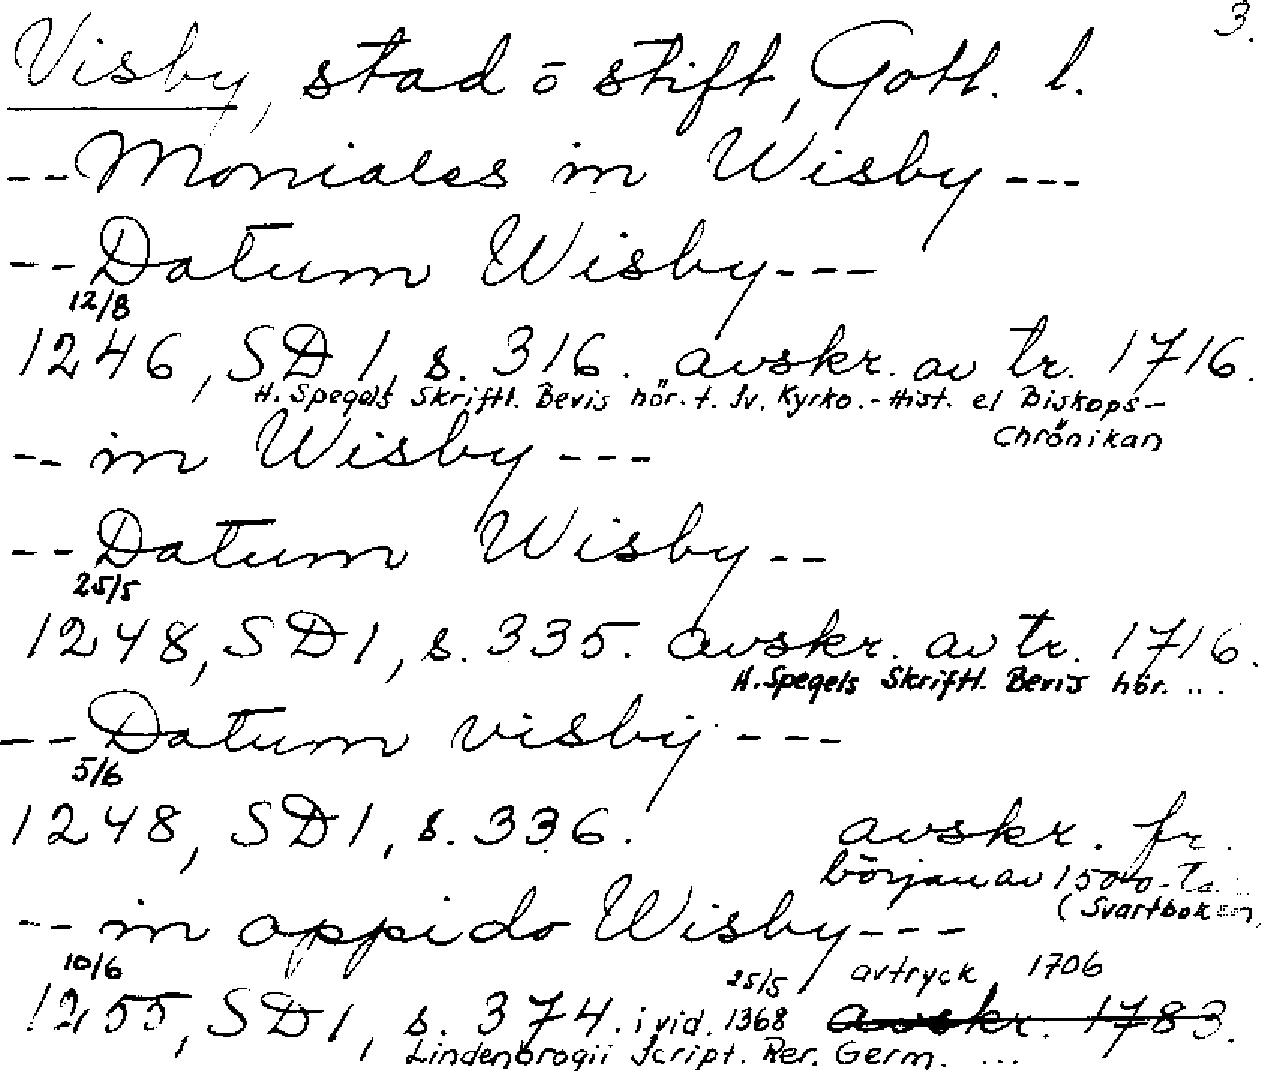 3.
Visby, stad o stift, Gotl. l.
--Moniales in Wisby---
--Datum Wisby---
12/8
1246, SD 1, s. 316. avskr. av tr. 1716.
H. Spegels Skriftl. Bevis hör. t. Sv. Kyrko.-Hist. el Biskops-
Chrönikan
-- in Wisby---
--Datum Wisby--
25/5
1248, SD 1, s. 335. avskr. av tr. 1716.
H. Spegels Skriftl. Bevis hör. ...
--Datum visby---
5/6
1248, SD 1, s. 336. avskr. fr.
början av 1500-ta
(Svartboken,
-- in oppido Wisby---
10/6 25/5 avtryck 1706
1255, SD 1, s. 374. i vid. 1368 avskr. 1783.
Lindenbrogii Script. Rer. Germ. ...